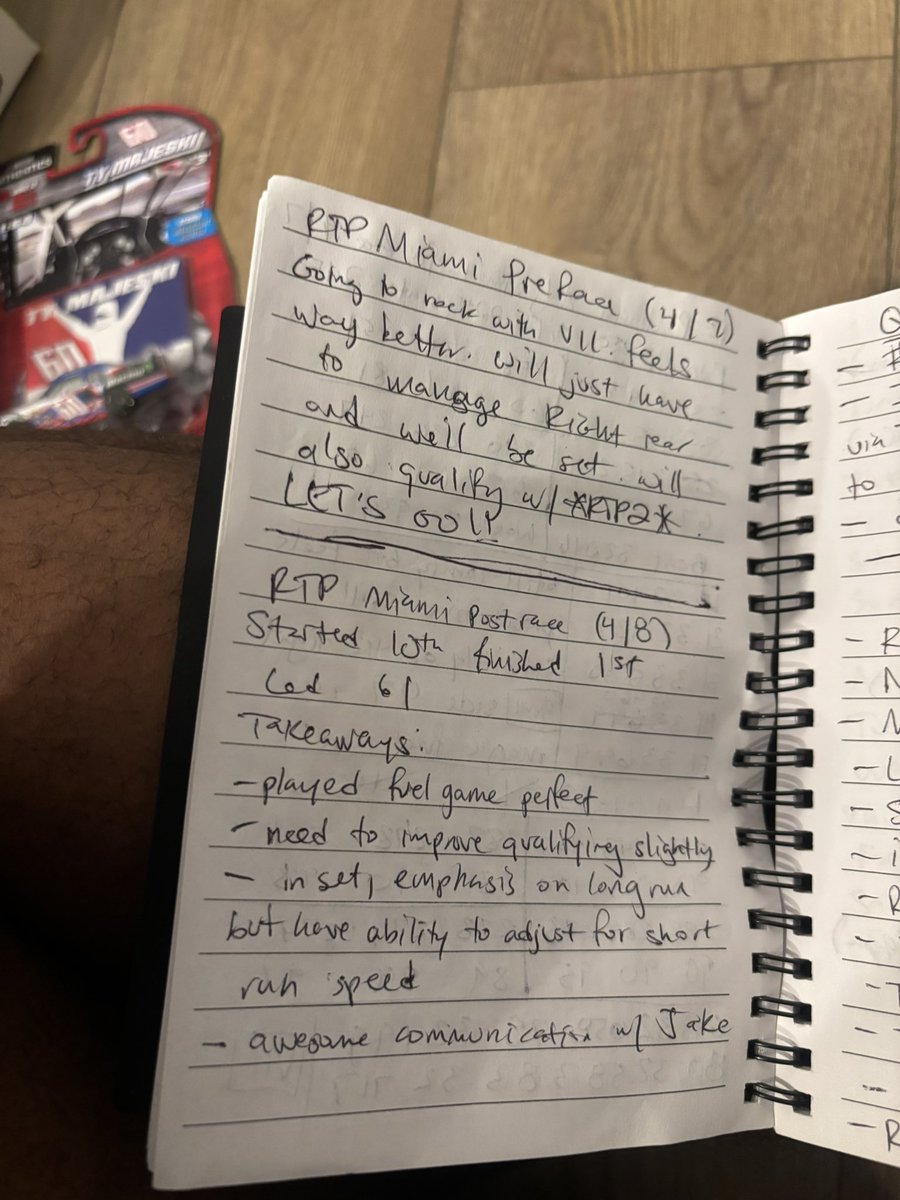 TY MAJESKI
TY MAJESKI
60
RTP Miami PreRace (4/7)
Going to rock with V11. feels
way better. will just have
to manage Right rear
and we'll be set. will
also qualify w/ *RTP2*.
LET'S GO!!
RTP Miami Postrace (4/8)
Started 10th finished 1st
Led 61
Takeaways:
- played fuel game perfect
- need to improve qualifying slightly
- in set, emphasis on long run
but have ability to adjust for short
run speed
- awesome communication w/ Jake
Q
-
-
via
to
-
- R
- N
- N
- L
- S
- i
- R
-
- T
-
-
- R